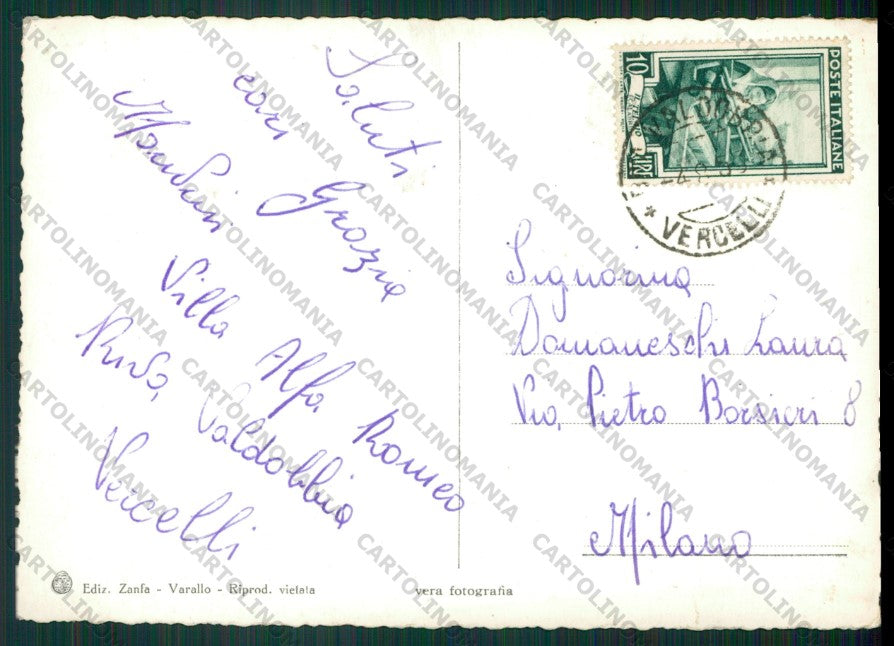 Saluti
cari Grazia
Mandrini
Villa Alfa Romeo
Riva Valdobbia
Vercelli
POSTE ITALIANE
10
LIRE
RIVA VALDOBBIA
* VERCELLI *
Signorina
Domaneschi Laura
Via Pietro Borsieri 8
Milano
Ediz. Zanfa - Varallo - Riprod. vietata
vera fotografia
CARTOLINOMANIA